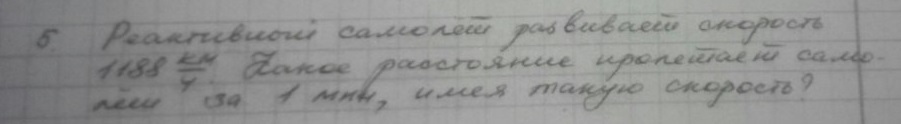 5. Реактивный самолёт развивает скорость
1188 км/ч. Какое расстояние пролетает само-
лёт за 1 мин, имея такую скорость?